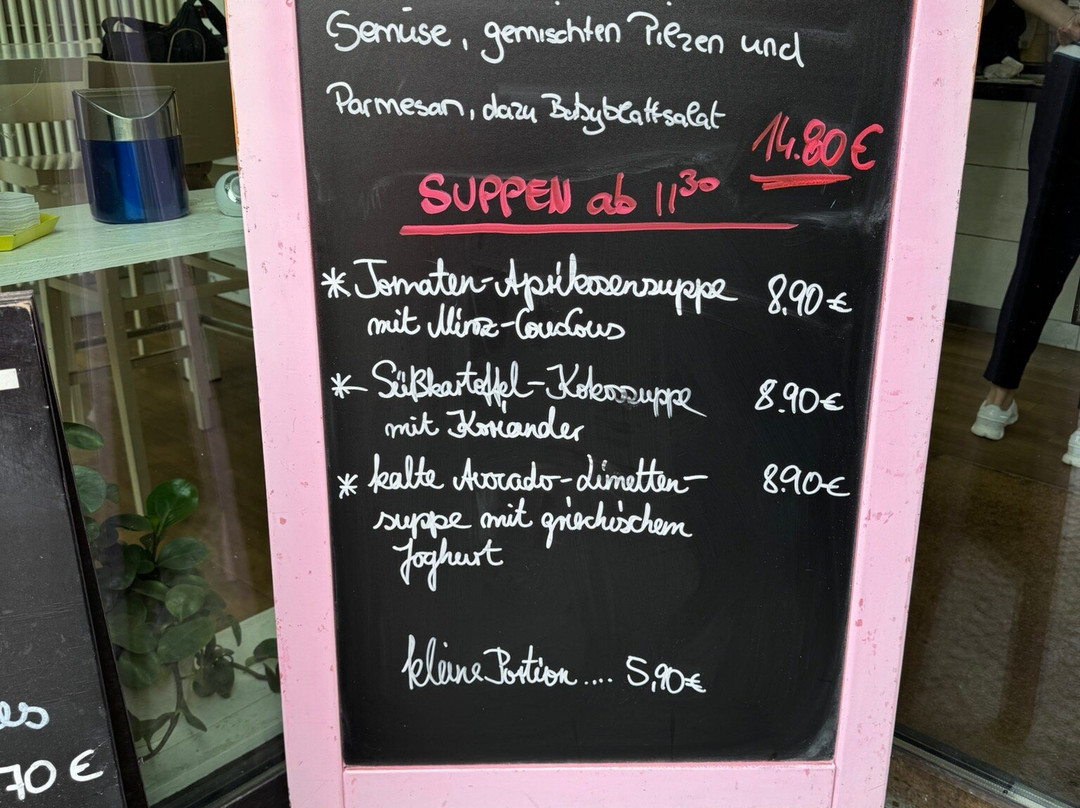 Gemüse, gemischten Pilzen und
Parmesan, dazu Babyblattsalat
14.80€
SUPPEN ab 11³⁰
* Tomaten-Aprikosensuppe 8,90€
mit Minz-Couscous
* Süßkartoffel-Kokossuppe 8.90€
mit Koriander
* kalte Avocado-Limetten- 8.90€
suppe mit griechischem
Joghurt
kleine Portion .... 5,90€
es
70€